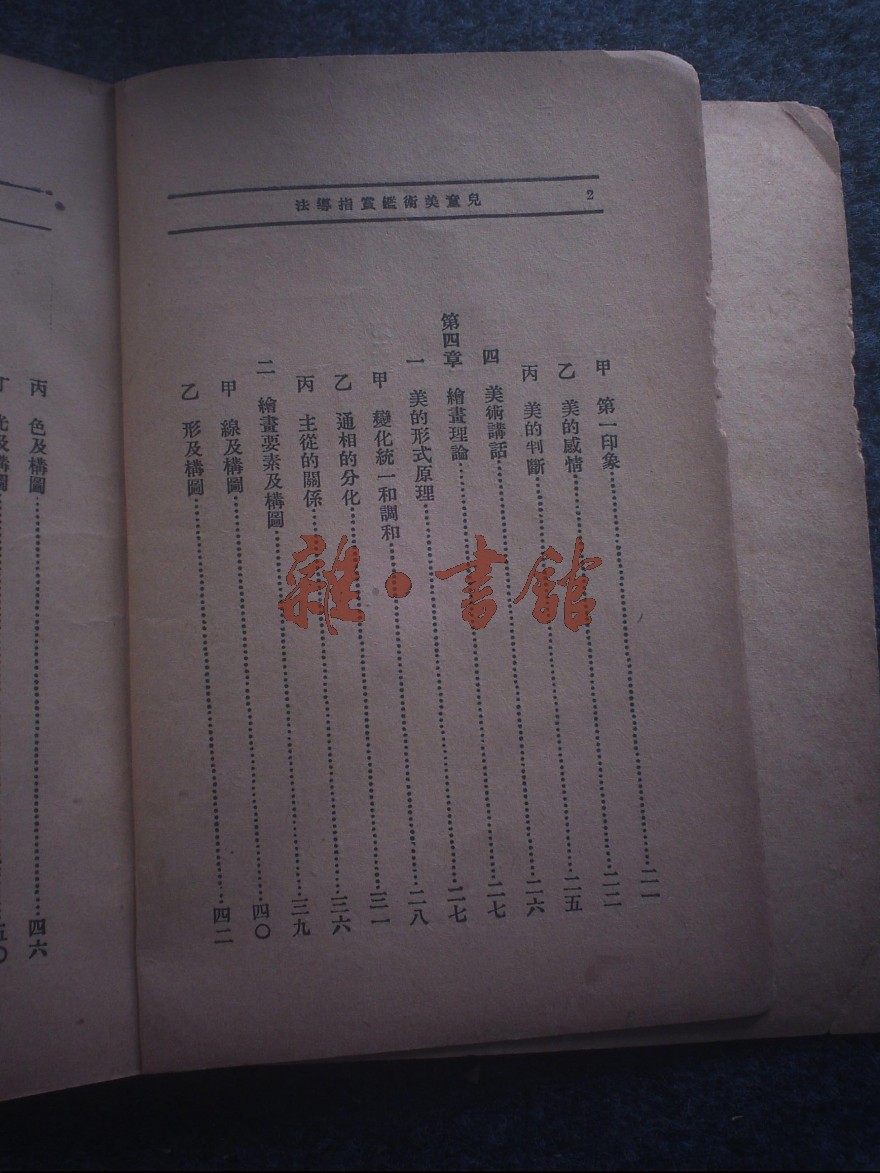 兒童美術鑑賞指導法 2
甲 第一印象……二一
乙 美的感情……二二
丙 美的判斷……二五
四 美術講話……二六
第四章 繪畫理論……二七
一 美的形式原理……二七
甲 變化統一和調和……二八
乙 通相的分化……三一
丙 主從的關係……三六
二 繪畫要素及構圖……三九
甲 線及構圖……四〇
乙 形及構圖……四二
丙 色及構圖……四六
光及構圖
雜·書館